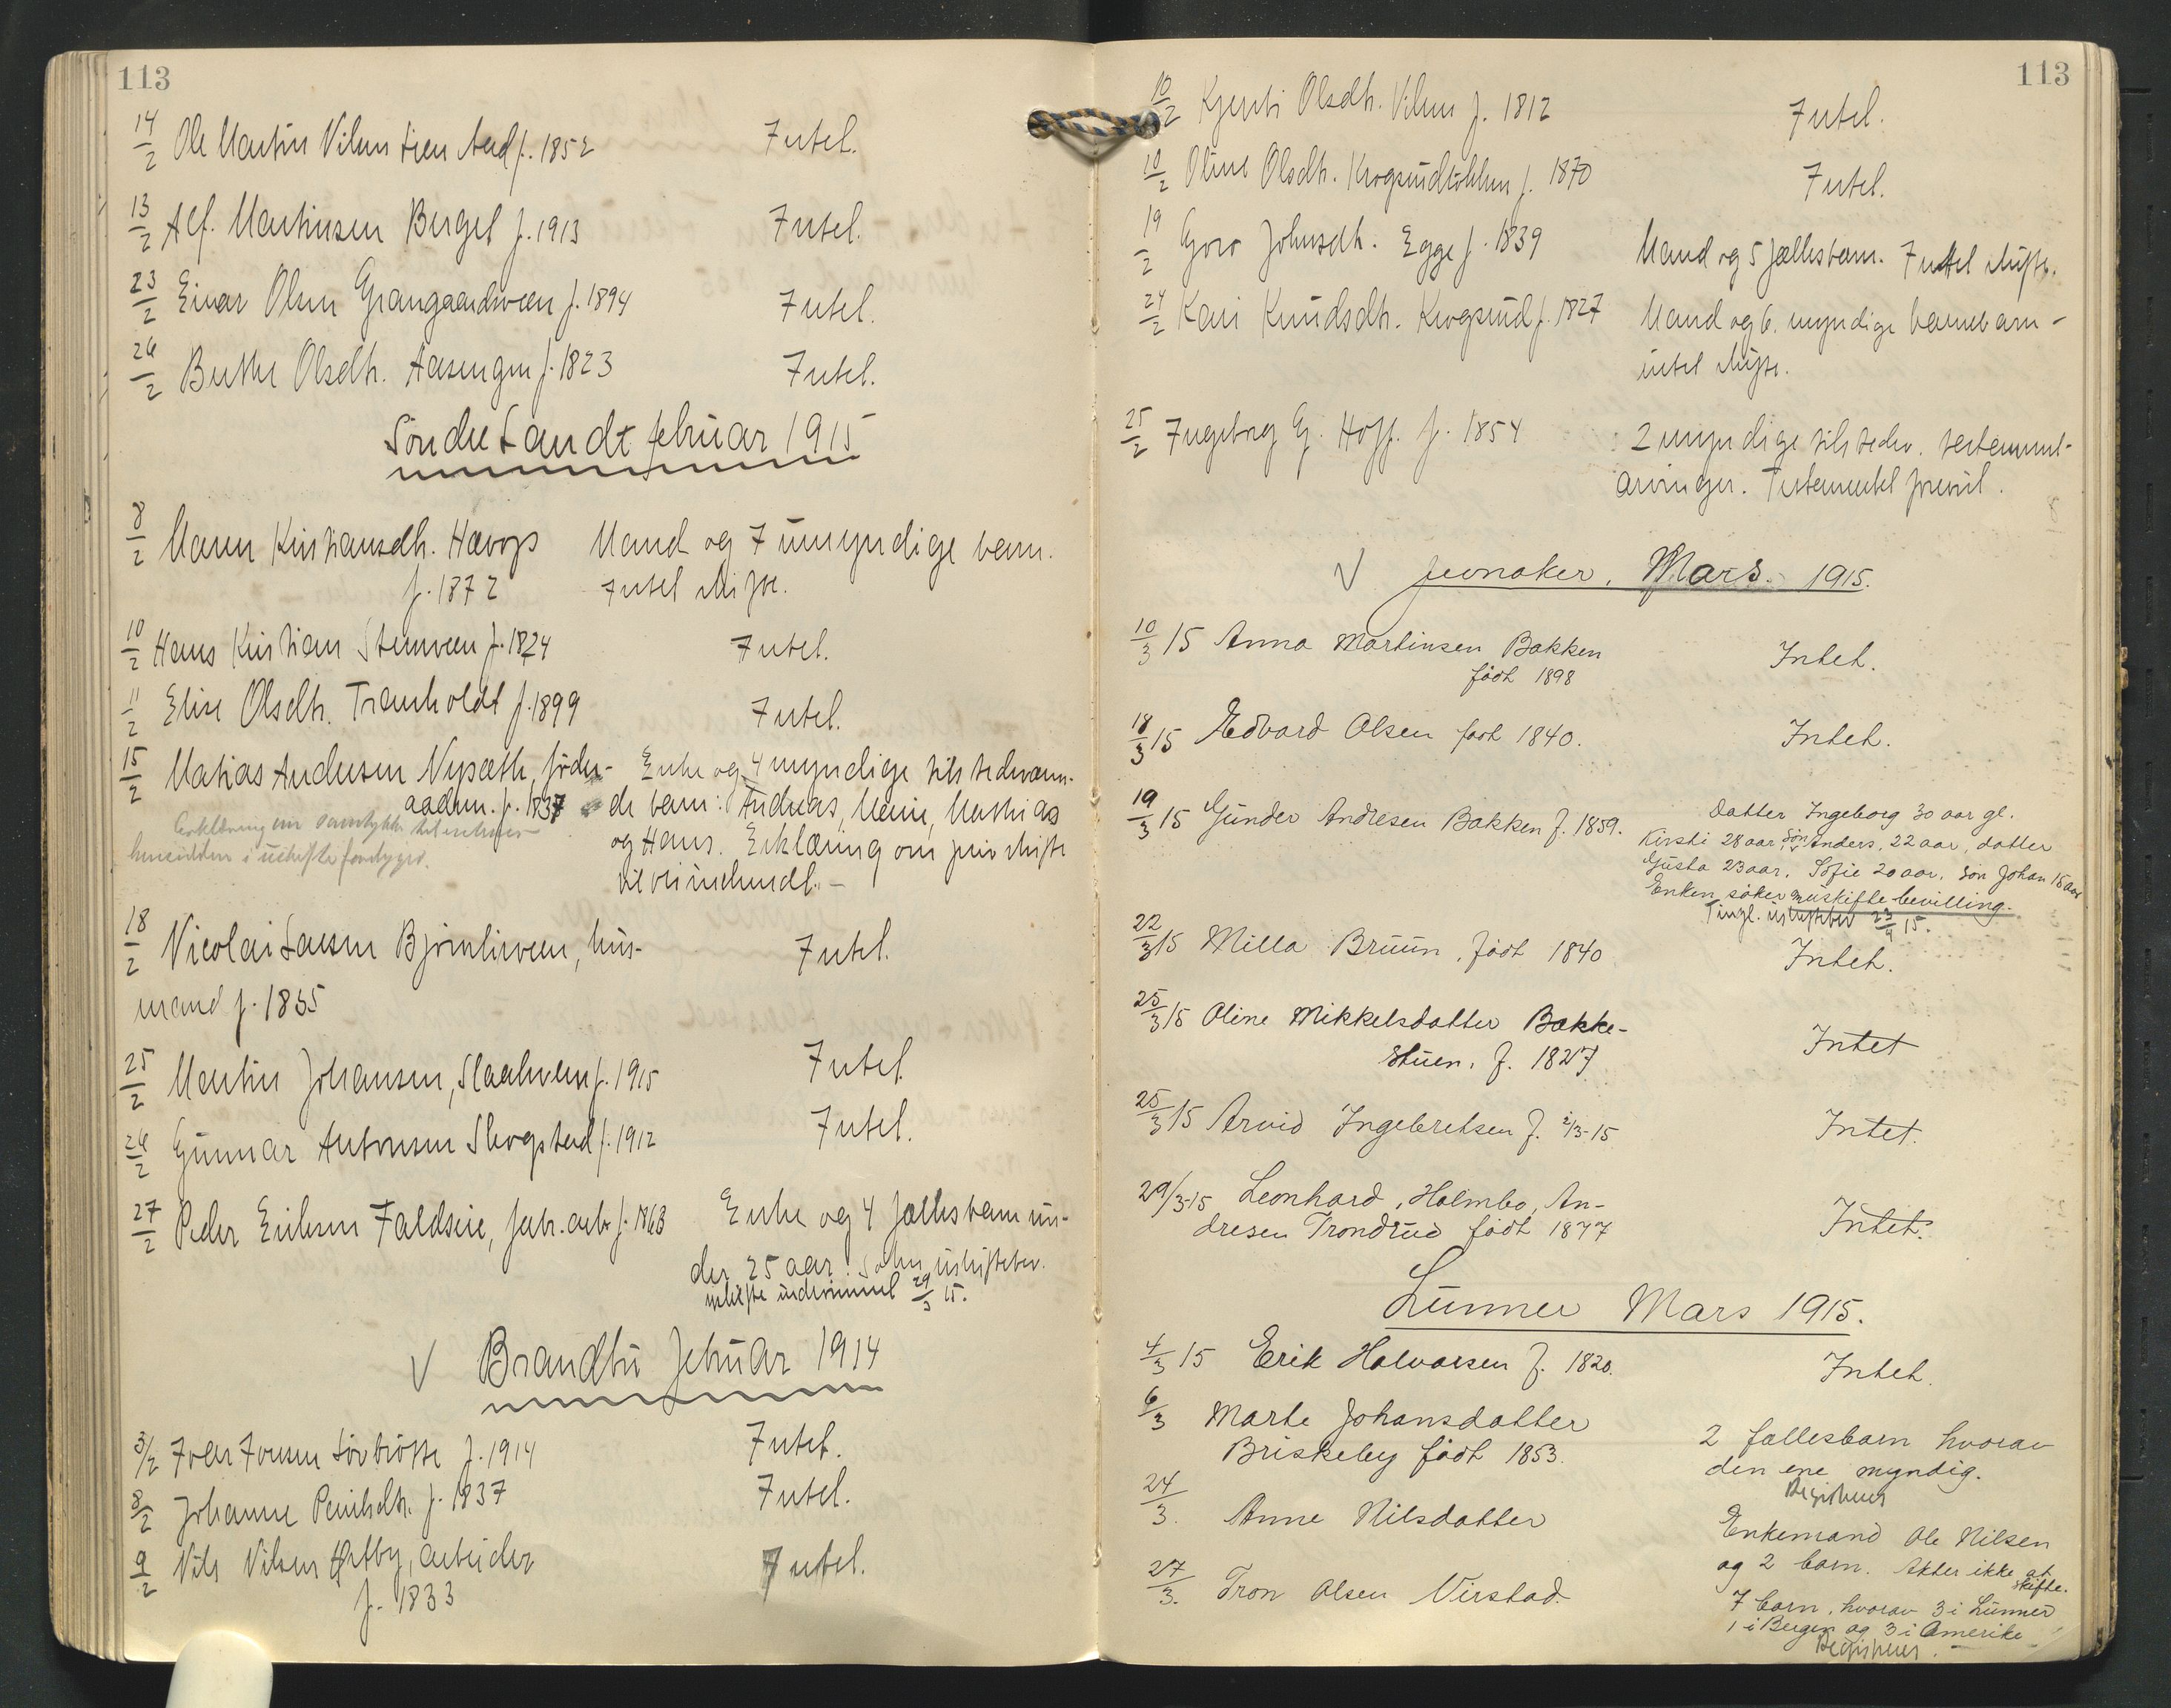 113
14/2 Ole Martin Vilmstien Aud f. 1852 Intet.
13/2 Alf. Martinsen Berget f. 1913 Intet.
23/2 Einar Olsen Grangaardsveen f. 1894 Intet.
26/2 Berthe Olsdtr. Aasengen f. 1823 Intet.
Söndre Landt februar 1915
8/2 Maren Kristiansdtr. Havos Mand og 7 umyndige barn.
f. 1872 Intet skifte.
10/2 Hans Kristian Stenveen f. 1824 Intet.
11/2 Elise Olsdtr. Tranholdt f. 1899 Intet.
15/2 Mathias Andersen Nysæth, föder- Enke og 4 myndige tilstedeværen-
aadsm. f. 1837 de barn: Andreas, Mathias
Erklæring om samtykke til
i uskifte
og Hans. Erklæring om priv. skifte
vil bli indsendt. –
18/2 Nicolai Larsen Björnlinveen, hus- Intet.
mand f. 1835
25/2 Martin Johansen, Slaatveen f. 1915 Intet.
26/2 Gunnar Antonsen Skogstad f. 1912 Intet.
27/2 Peder Eriksen Faldseie, fabr. arb. f. 1863 Enke og 4 fællesbarn un-
der 25 aar. Söker uskiftebev.
29/3 15.
V Brandbu februar 1914
3/2 Ivar Iversen f. 1914 Intet.
8/2 Johanne f. 1837 Intet.
9/2 Nils Nilsen Östby, arbeider Intet.
f. 1833
113
10/2 Kjersti Olsdtr. Vilm f. 1812 Intet.
10/2 Oline Olsdtr. Krogsrudkollen f. 1870 Intet.
19/2 Goro Johnsdtr. Egge f. 1839 Mand og 5 fællesbarn. Intet skifte.
24/2 Kari Knudsdtr. Krogsrud f. 1827 Mand og 6. myndige barnebarn –
intet skifte.
25/2 Ingeborg G. Hoff. f. 1854 2 myndige tilstedev. testament-
arvinger. Testamentet
V Jevnaker, Mars. 1915.
10/3 15 Anna Martinsen Bakken Intet.
födt 1898
18/3 15 Edvard Olsen födt 1840. Intet.
19/3 15 Gunder Andresen Bakken f. 1859. Datter Ingeborg 30 aar gl.
Kirsti 28 aar, sön Anders, 22 aar, datter
Gusta 23 aar. Sofie 20 aar. Sön Johan 15 aar
Enken söker uskiftebevilling.
Tingl. uskiftebev 23/4 15.
22/3 15 Milla Bruun, födt 1840 Intet.
25/3 15 Oline Mikkelsdatter Bakke- Intet
stuen. f. 1827
25/3 15 Arvid Ingebretsen f. 2/3-15 Intet.
29/3-15 Leonhard, Holmbo, An- Intet.
dresen Trondrud födt 1877
Lunner Mars 1915.
4/3 15 Erik Halvorsen f. 1820. Intet.
6/3 Marte Johansdatter 2 fællesbarn hvorav
Briskeby födt 1853. den ene myndig.
Registreres
24/3. Anne Nilsdatter Enkemand Ole Nilsen
og 2 barn. Akter ikke at
skifte.
27/3. Tron Olsen Virstad. 7 barn, hvorav 3 i Lunner
1 i Bergen og 3 i Amerika
Registreres. –